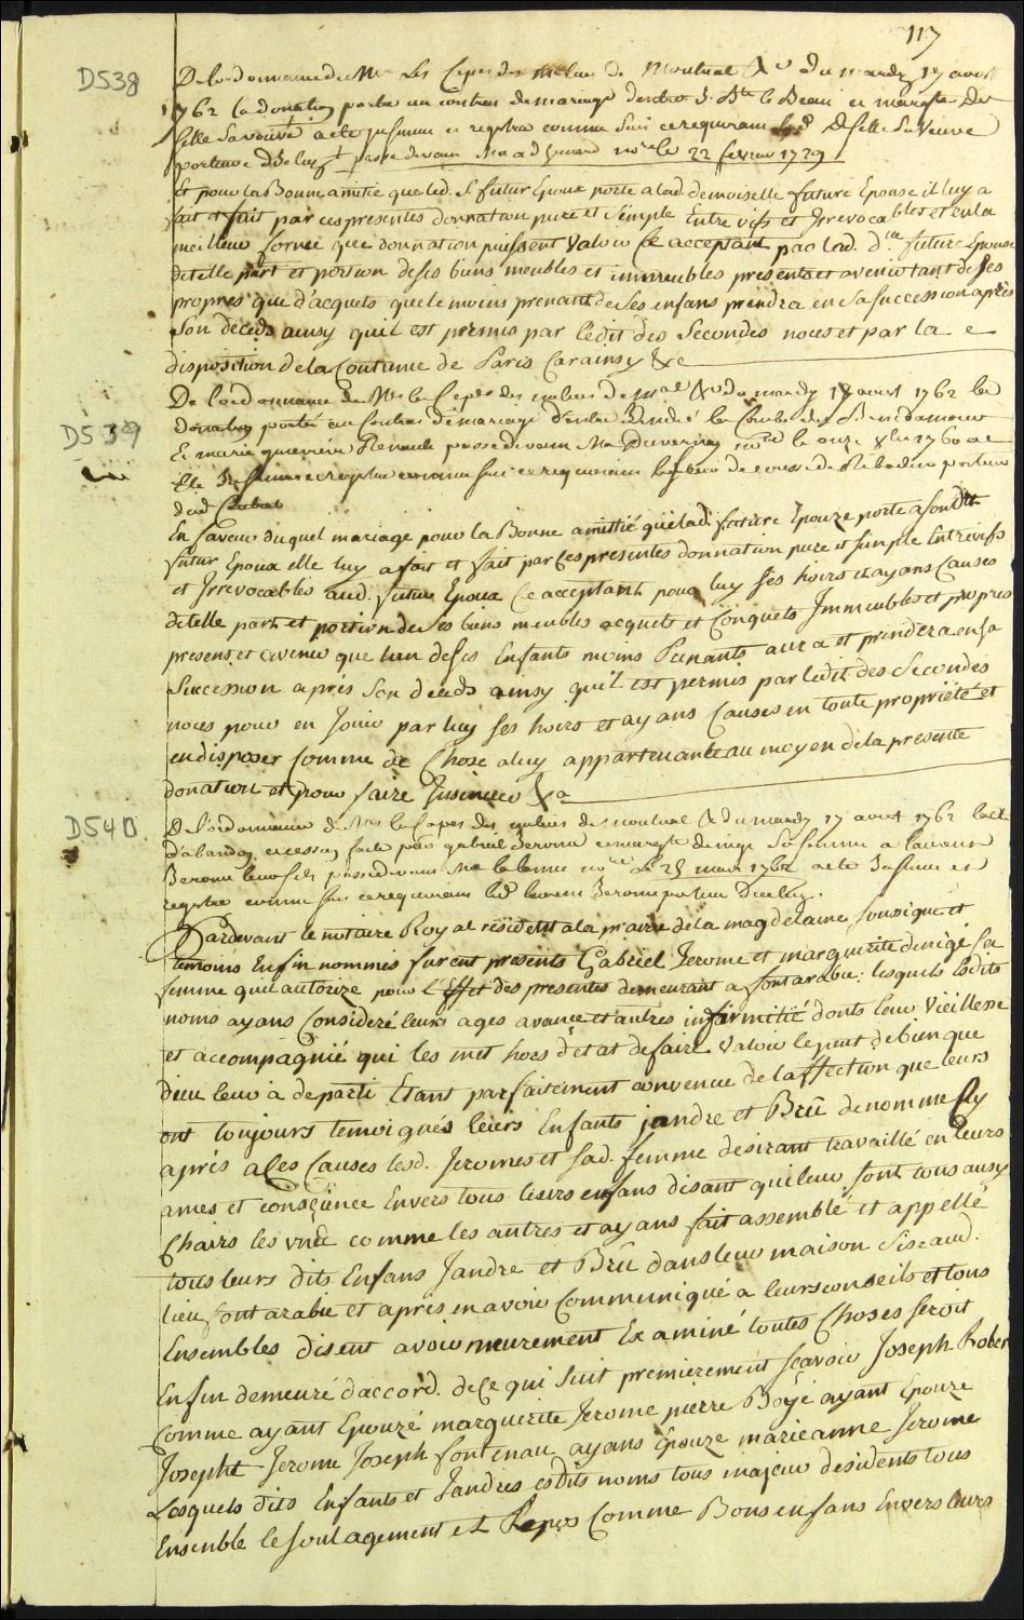 117
D538
De lordonnance de Mrs Les Capnes des milices de Montreal &a du mardy 17 avost
1762 la donation portée au contrat de mariage dentre S. Bte le Beau et margte De
selle sa veuve acte Insinué et registré comme suit ce requerant lad Dselle Sa Veuve
porteuse dicelluy passé devant Me adhemard nore le 22 fevrier 1729
Et pour la Bonne amitié que led. S. futur Epoux porte a lad. demoiselle future Epouse il luy a
fait et fait par ces presentes donnation pure et simple Entre vifs et Irrevocables et en la
meilleur forme que donnation puissent Valoir Ce acceptant par lad. dlle future Epouse
de telle part et portion de ses biens meubles et immeubles presents et avenir tant de ses
propres que d'acquets que le moins prenant de ses enfans prendra en sa succession après
Son deceds ainsy quil est permis par l'édit des Secondes noces et par la
disposition de la Coutume de Paris Car ainsy &c
D539
De l'ordonnance de Mrs les Capes des milices de Mal &a du mardy 17 avost 1762 la
donation portée au Contrat de mariage d'entre
Et marie genevieve Renault passé devant Me Duvernay nore le onze 8bre 1760 ac
te Insinué et registré comme suit ce requerant
dud Contrat
En faveur duquel mariage pour la Bonne amittié que lad. future Epouze porte a son dt
futur Epoux elle luy a fait et fait par Ces presentes donnation pure et simple Entrevifs
et Irrevocables aud. futur Epoux Ce acceptant pour luy ses hoirs et ayans Causes
de telle part et portion de ses biens meubles acquets et Conquets Immeubles et propres
present et avenir que l'un de ses Enfants moins Prenants aura et prendera en sa
Succession après Son deceds ainsy quil est permis par l'edit des Secondes
noces pour en Jouir par luy ses hoirs et ayans Causes en toute propriété et
en disposer Comme de Chose a luy appartenante au moyen de la presente
donation et pour faire Insinuer &a
D540
De l'ordonnance de Mrs les Capes des milices de montreal & du mardy 17 avost 1762 l'acte
d'abandon et cession faite par gabriel Jerome et margte denige Sa femme a laurent
Jerome leur fils passé devant Me nore le 25 mars 1762 acte Insinué et
registré comme suit ce requerant led laurent Jerome porteur dicelluy.
Pardevant le notaire Royal résident a la prairie de la magdelaine sousigné et
temoins Enfin nommés furent presents Gabriel Jerome et marguerite denigé Sa
femme quil autorize pour l'Effet des presentes demeurant a fontarabie: lesquels Esdits
noms ayans Consideré leurs ages avancé et autres infirmitié donts leur Vieillesse
et accompagnié qui les met hors d'etat de faire Valoir le peut de bien que
dieu leur à departi Etant parfaitement convenue de l'affection que leurs
ont toujours temoignés leurs Enfants jandre et Brû denommé Cy
après a Ces Causes lesd. Jeromes et sad. femme desirant travaillé en leurs
ames et consçience Envers tous leurs enfans disant quil leur sont tous ausy
Chairs les vnds comme les autres et ayans fait assemblé et appellé
tous leurs dits Enfans Jandre et Brû dans leur maison Size aud.
lieu fontarabie et après en avoir Communiqué a leurs conseils et tous
Ensembles disent avoir meurement Examiné toutes Choses seroit
Enfin demeuré d'accord. de Ce qui Suit premierement sçavoir Joseph Rober
Comme ayant Epouzé marguerite Jerome pierre Boyé ayant Epouze
Josepht Jerome Joseph fontenau ayans Epouze marieanne Jerome
Lesquels dits Enfants et Jandres esdits noms tous majeur desidents tous
Ensemble le soulagement et Repos Comme Bons enfans Envers leurs